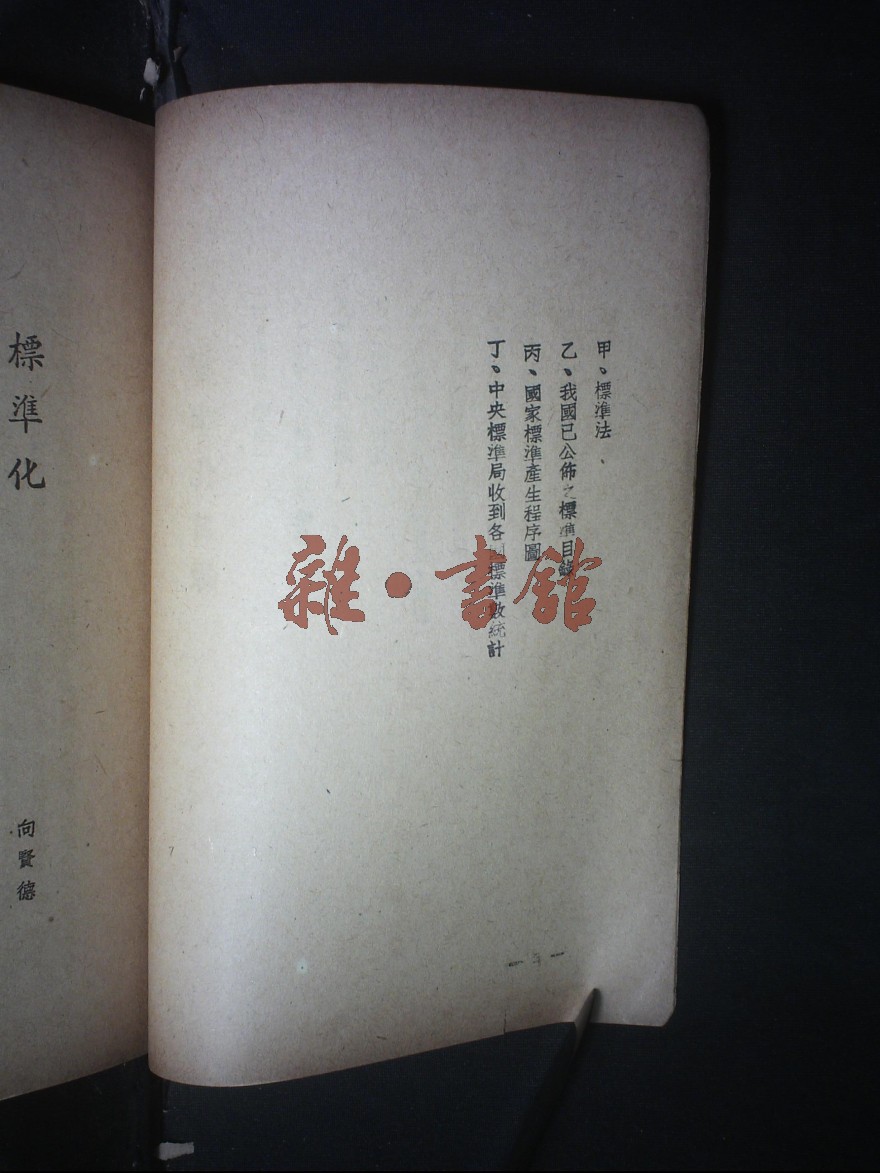 甲、標準法
乙、我國已公佈之標準目錄
丙、國家標準產生程序圖
丁、中央標準局收到各國標準數統計
雜·書館
標準化
向賢德